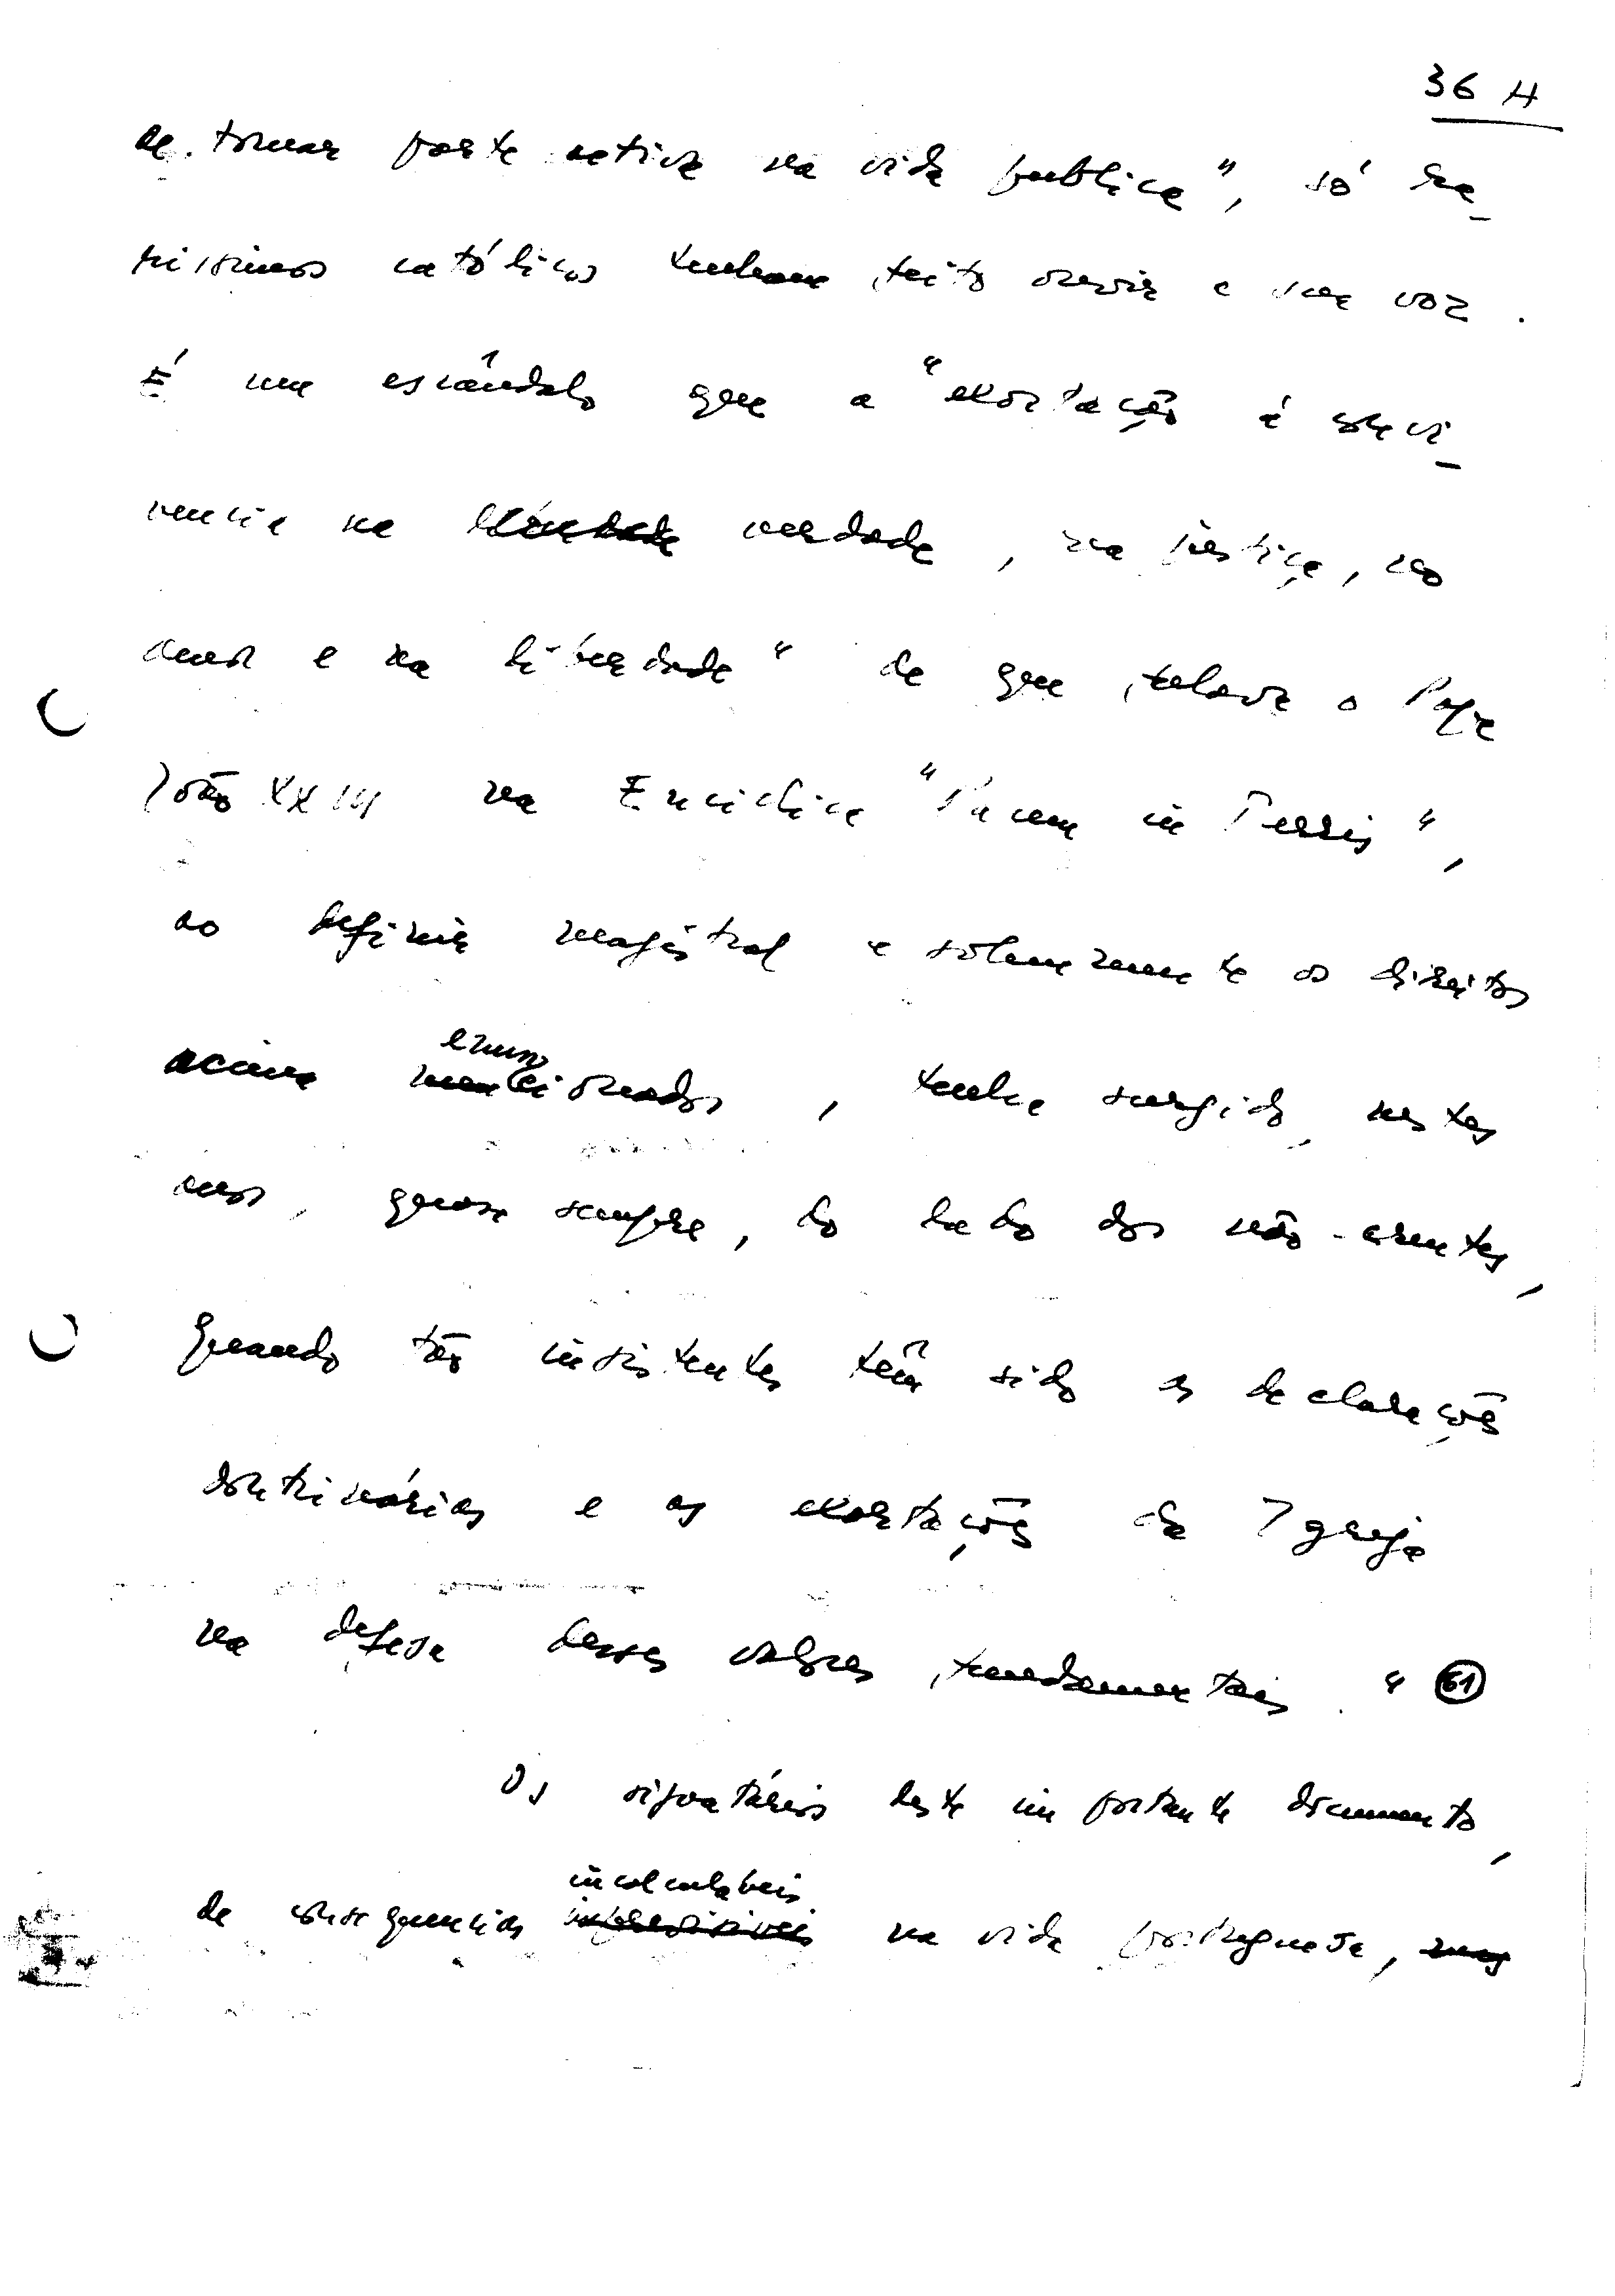 36 H
de tomar parte activa na vida publica", só ra_
rissimos católicos tenham feito ouvir a sua voz.
É um escândalo que a "exortação à convi_
vencia na verdade, na justiça, no
amor e na liberdade" de que falava o Papa
João XXIII na Enciclica "Pacem in Terris",
ao definir magistral e solenemente os direitos
acima enunciados, tenha surgido, nestes
anos, quase sempre, do lado dos não-crentes,
quando tão insistentes têm sido as declarações
doutrinárias e as exortações da Igreja
na defesa desses valores fundamentais." 61
Os signatários deste importante documento,
de consequencias incalculabeis na vida portuguesa, mas